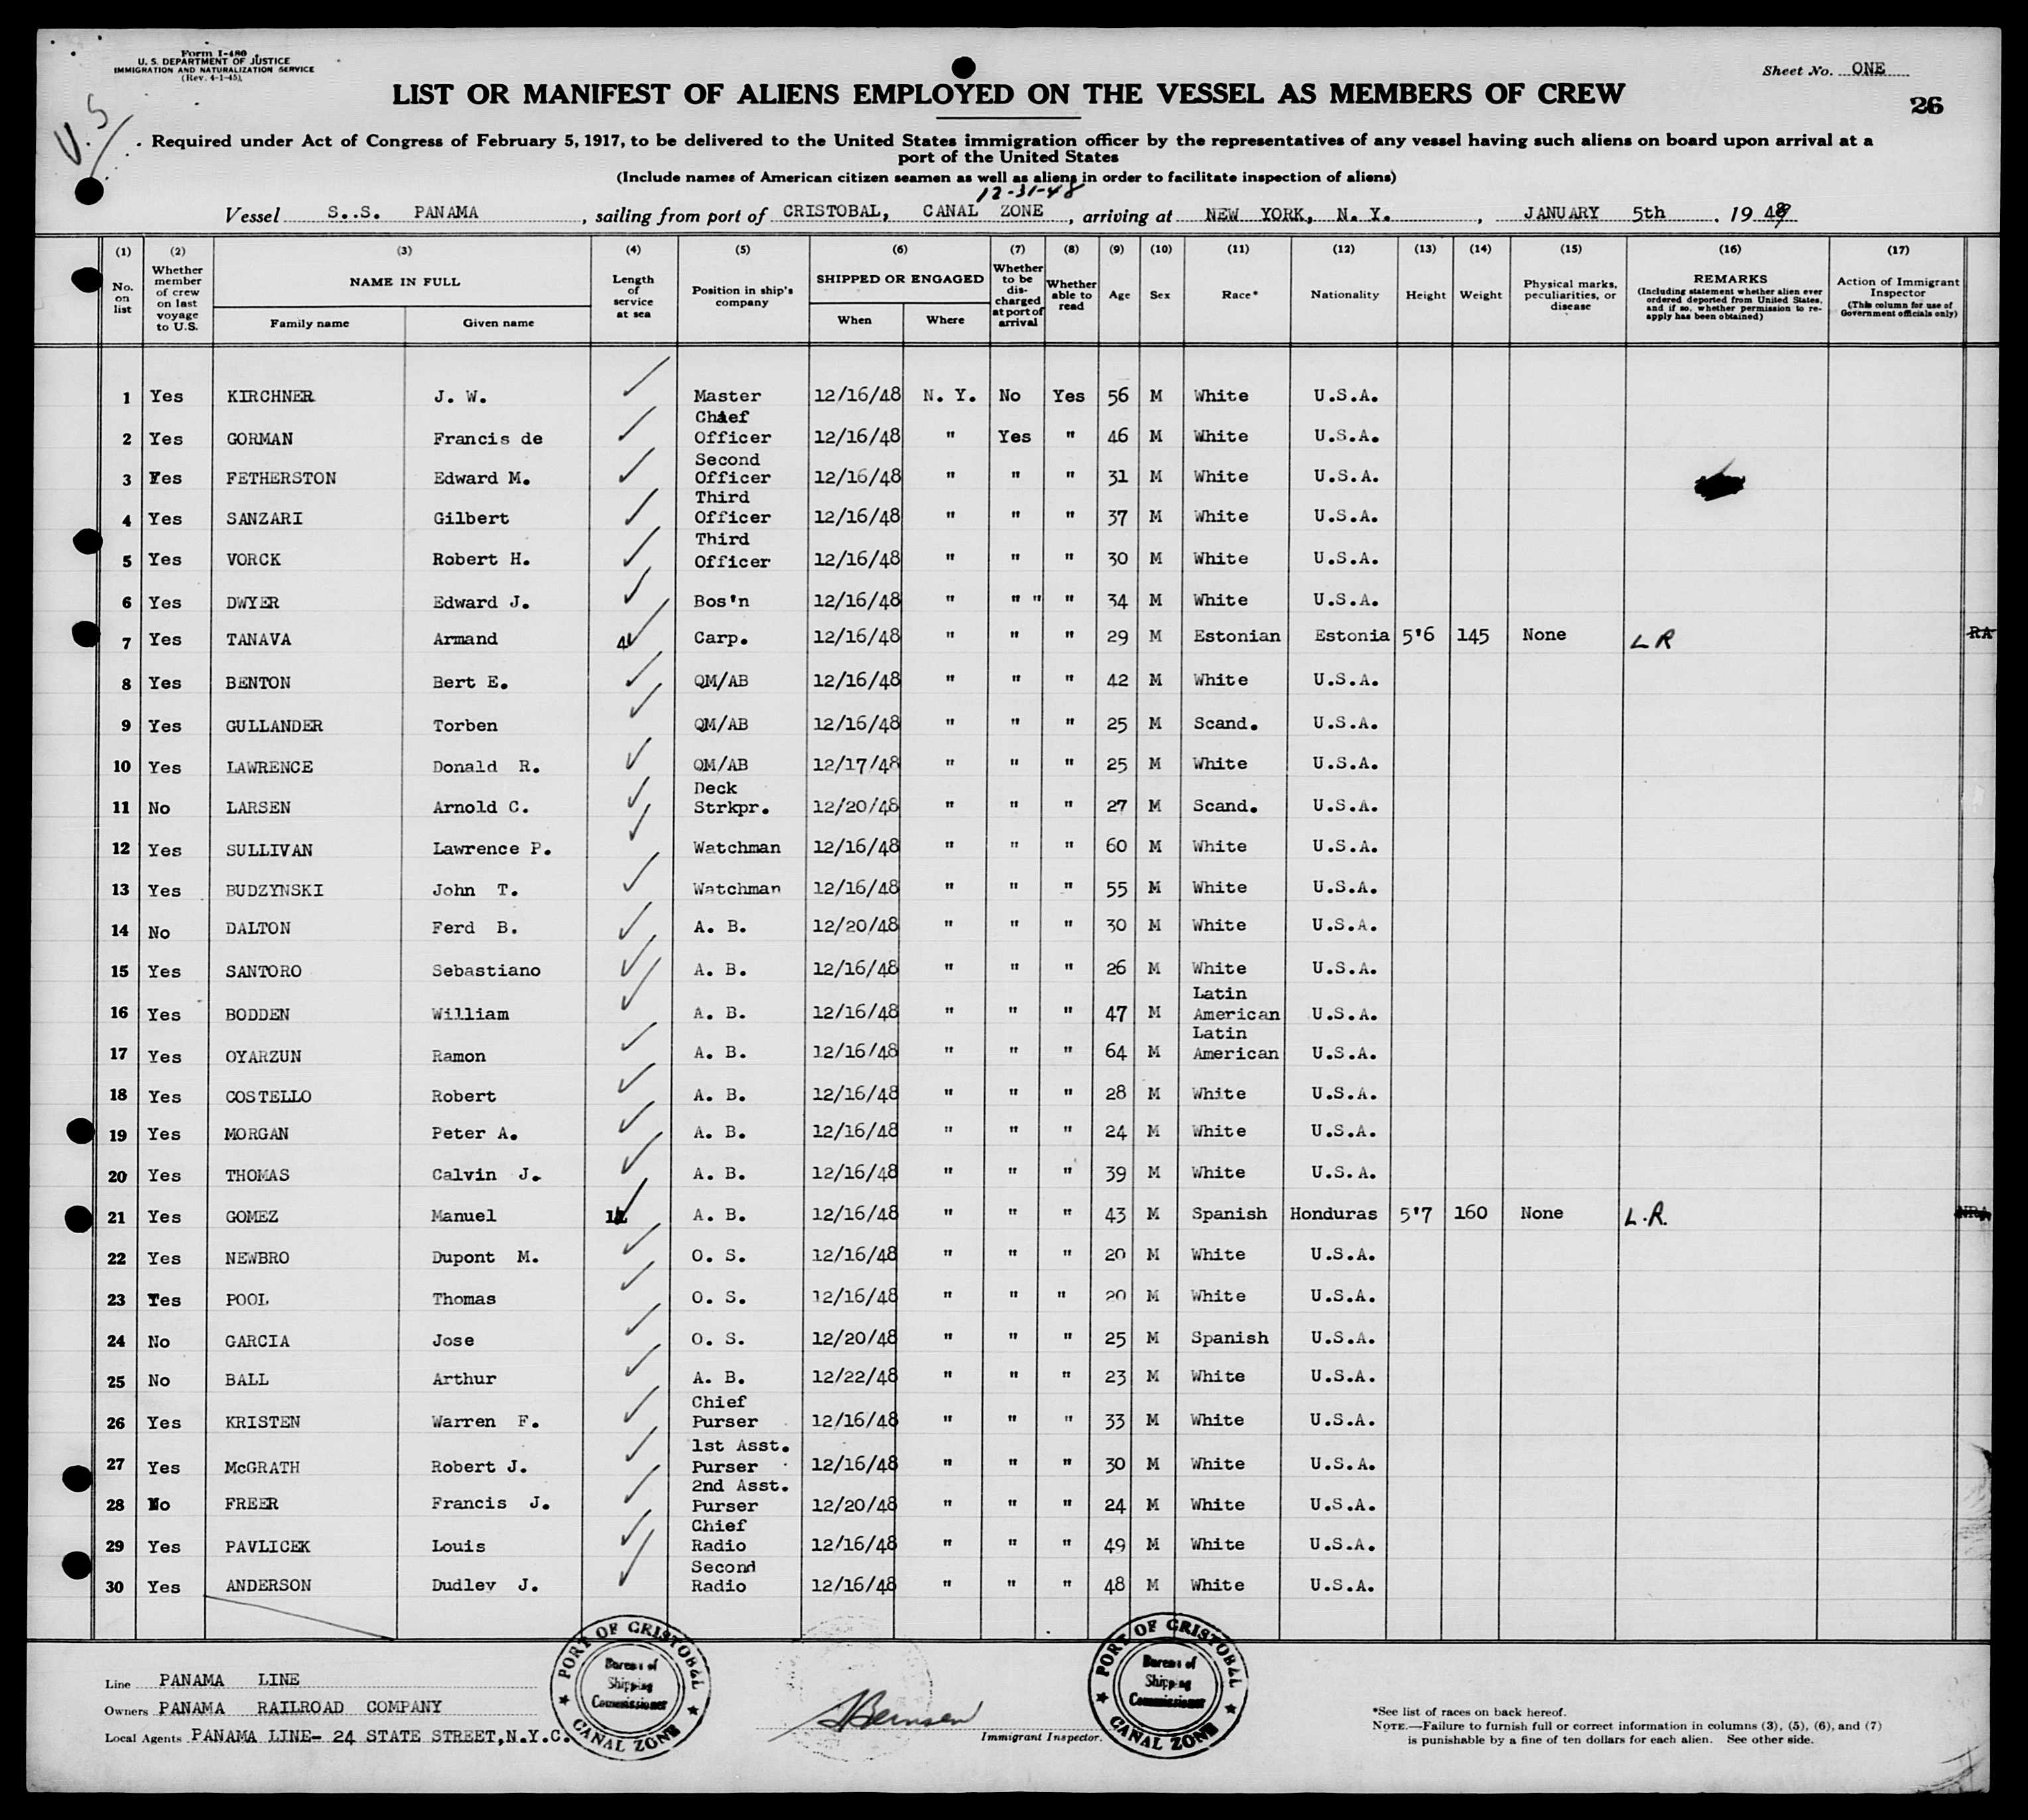 Form I-480
U. S. DEPARTMENT OF JUSTICE
IMMIGRATION AND NATURALIZATION SERVICE
(Rev. 4-1-45)
Sheet No. ONE
LIST OR MANIFEST OF ALIENS EMPLOYED ON THE VESSEL AS MEMBERS OF CREW
26
U.S
Required under Act of Congress of February 5, 1917, to be delivered to the United States immigration officer by the representatives of any vessel having such aliens on board upon arrival at a
port of the United States
(Include names of American citizen seamen as well as aliens in order to facilitate inspection of aliens)
12-31-48
Vessel S..S. PANAMA, sailing from port of CRISTOBAL, CANAL ZONE, arriving at NEW YORK, N. Y., JANUARY 5th, 1949
(1) (2) (3) (4) (5) (6) (7) (8) (9) (10) (11) (12) (13) (14) (15) (16) (17)
No. on list
Whether member of crew on last voyage to U.S.
NAME IN FULL
Family name
Given name
Length of service at sea
Position in ship's company
SHIPPED OR ENGAGED
When
Where
Whether to be discharged at port of arrival
Whether able to read
Age
Sex
Race*
Nationality
Height
Weight
Physical marks, peculiarities, or disease
REMARKS
(Including statement whether alien ever ordered deported from United States, and if so, whether permission to reapply has been obtained)
Action of Immigrant Inspector
(This column for use of Government officials only)
1 Yes KIRCHNER J. W. Master 12/16/48 N. Y. No Yes 56 M White U.S.A.
2 Yes GORMAN Francis de Chief Officer 12/16/48 " Yes " 46 M White U.S.A.
3 Yes FETHERSTON Edward M. Second Officer 12/16/48 " " " 31 M White U.S.A.
4 Yes SANZARI Gilbert Third Officer 12/16/48 " " " 37 M White U.S.A.
5 Yes VORCK Robert H. Third Officer 12/16/48 " " " 30 M White U.S.A.
6 Yes DWYER Edward J. Bos'n 12/16/48 " " " " 34 M White U.S.A.
7 Yes TANAVA Armand 4 Carp. 12/16/48 " " " 29 M Estonian Estonia 5'6 145 None L R RA
8 Yes BENTON Bert E. QM/AB 12/16/48 " " " 42 M White U.S.A.
9 Yes GULLANDER Torben QM/AB 12/16/48 " " " 25 M Scand. U.S.A.
10 Yes LAWRENCE Donald R. QM/AB 12/17/48 " " " 25 M White U.S.A.
11 No LARSEN Arnold C. Deck Strkpr. 12/20/48 " " " 27 M Scand. U.S.A.
12 Yes SULLIVAN Lawrence P. Watchman 12/16/48 " " " 60 M White U.S.A.
13 Yes BUDZYNSKI John T. Watchman 12/16/48 " " " 55 M White U.S.A.
14 No DALTON Ferd B. A. B. 12/20/48 " " " 30 M White U.S.A.
15 Yes SANTORO Sebastiano A. B. 12/16/48 " " " 26 M White U.S.A.
16 Yes BODDEN William A. B. 12/16/48 " " " 47 M Latin American U.S.A.
17 Yes OYARZUN Ramon A. B. 12/16/48 " " " 64 M Latin American U.S.A.
18 Yes COSTELLO Robert A. B. 12/16/48 " " " 28 M White U.S.A.
19 Yes MORGAN Peter A. A. B. 12/16/48 " " " 24 M White U.S.A.
20 Yes THOMAS Calvin J. A. B. 12/16/48 " " " 39 M White U.S.A.
21 Yes GOMEZ Manuel A. B. 12/16/48 " " " 43 M Spanish Honduras 5'7 160 None L.R. NRA
22 Yes NEWBRO Dupont M. O. S. 12/16/48 " " " 20 M White U.S.A.
23 Yes POOL Thomas O. S. 12/16/48 " " " 20 M White U.S.A.
24 No GARCIA Jose O. S. 12/20/48 " " " 25 M Spanish U.S.A.
25 No BALL Arthur A. B. 12/22/48 " " " 23 M White U.S.A.
26 Yes KRISTEN Warren F. Chief Purser 12/16/48 " " " 33 M White U.S.A.
27 Yes McGRATH Robert J. 1st Asst. Purser 12/16/48 " " " 30 M White U.S.A.
28 No FREER Francis J. 2nd Asst. Purser 12/20/48 " " " 24 M White U.S.A.
29 Yes PAVLICEK Louis Chief Radio 12/16/48 " " " 49 M White U.S.A.
30 Yes ANDERSON Dudley J. Second Radio 12/16/48 " " " 48 M White U.S.A.
Line PANAMA LINE
Owners PANAMA RAILROAD COMPANY
Local Agents PANAMA LINE- 24 STATE STREET,N.Y.C.
PORT OF CRISTOBAL
Bureau of
Shipping
Commissioner
CANAL ZONE
Immigrant Inspector.
PORT OF CRISTOBAL
Bureau of
Shipping
Commissioner
CANAL ZONE
*See list of races on back hereof.
NOTE.—Failure to furnish full or correct information in columns (3), (5), (6), and (7)
is punishable by a fine of ten dollars for each alien. See other side.